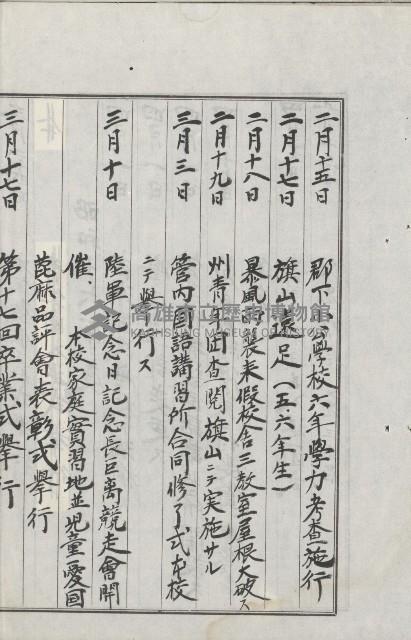 二月十五日 郡下公學校六年學力考查施行
二月十七日 旗山遠足(五六年生)
二月十八日 暴風雨襲来假校舎三教室屋根大破ス
二月十九日 州青年団查閲旗山ニテ実施サル
三月三日 管内国語講習所合同修了式本校
ニテ擧行ス
三月十日 陸軍記念日記念長巨离競走會開
催、本校家庭實習地並児童一愛園
蓖麻品評會表彰式擧行
三月十七日 第十七回卒業式擧行
高雄市立歷史博物館
KAOHSIUNG MUSEUM OF HISTORY